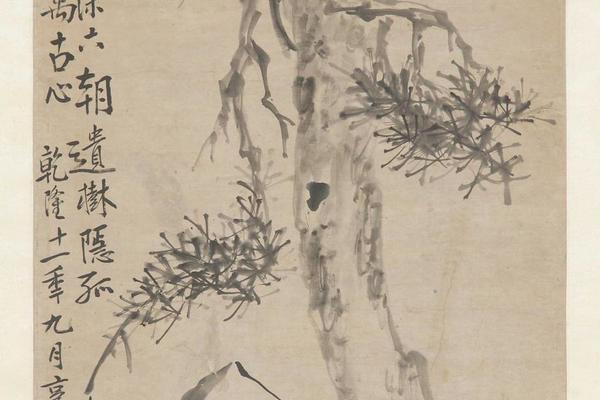 六朝遺樹隱孤
萬古心乾隆十一秊九月